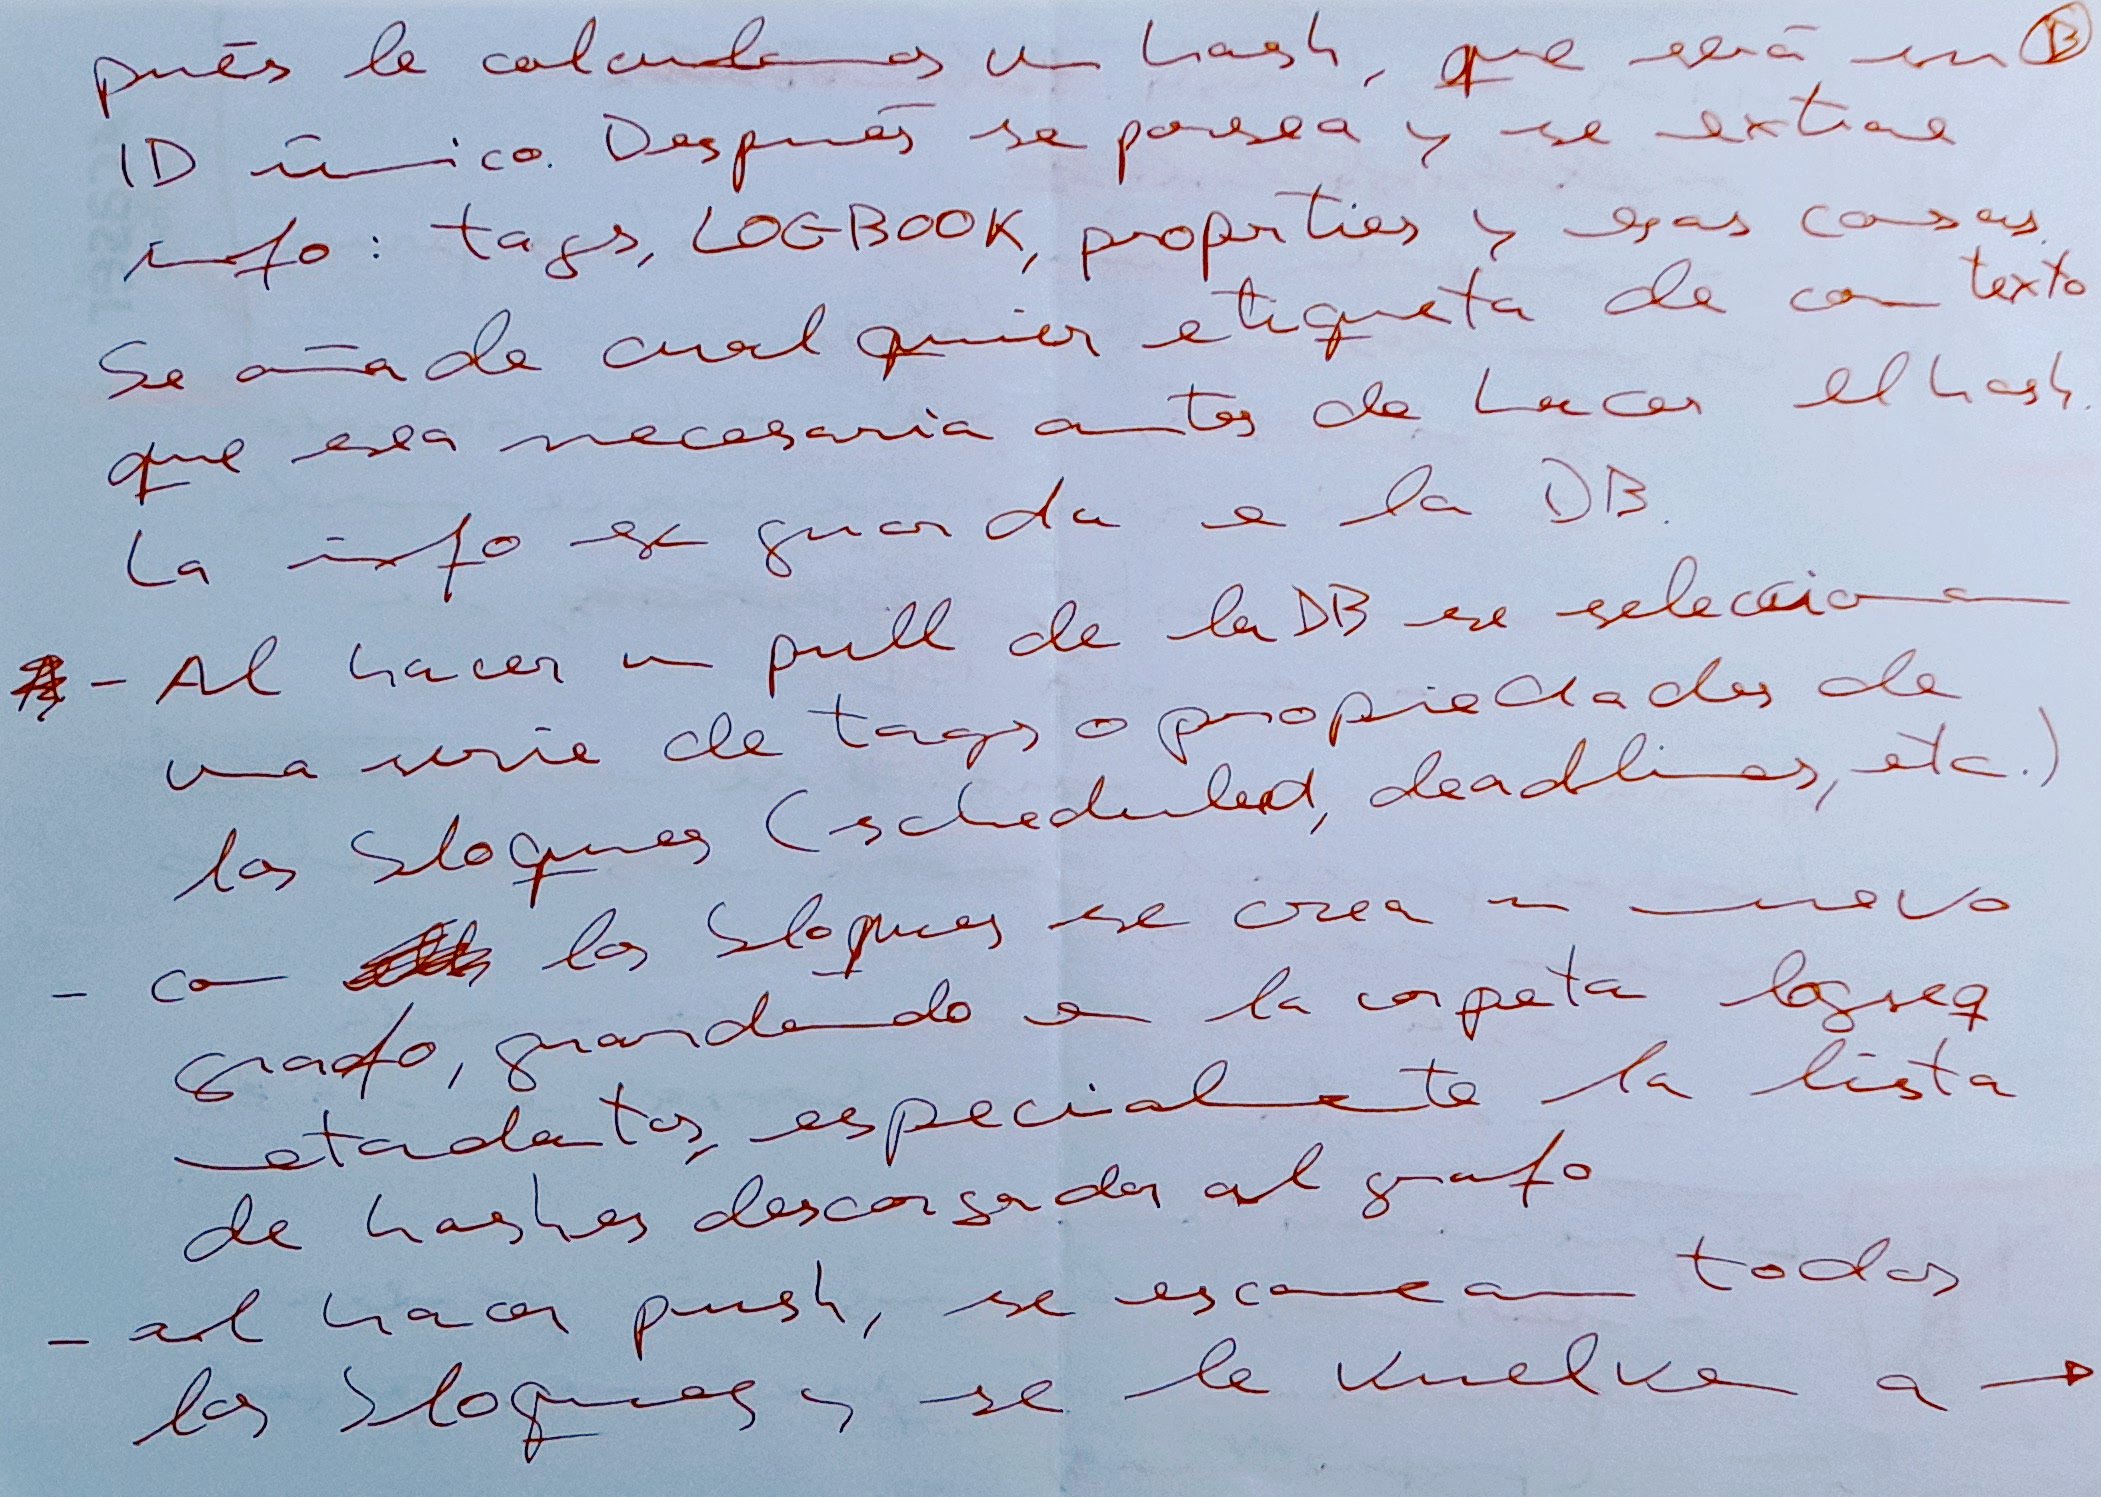 pués le calculamos un hash, que será un Ⓑ
ID único. Después se parsea y se extrae
info: tags, LOGBOOK, properties y esas cosas.
Se añade cualquier etiqueta de contexto
que sea necesaria antes de hacer el hash.
La info se guarda e la DB.
- Al hacer un pull de la DB se seleccionan
una serie de tags o propiedades de
los bloques (scheduled, deadlines, etc.)
- con los bloques se crea un nuevo
grafo, guardando en la carpeta logseq
metadatos, especialmente la lista
de hashes descargados al grafo
- al hacer push, se escanean todos
los bloques y se le vuelven a →